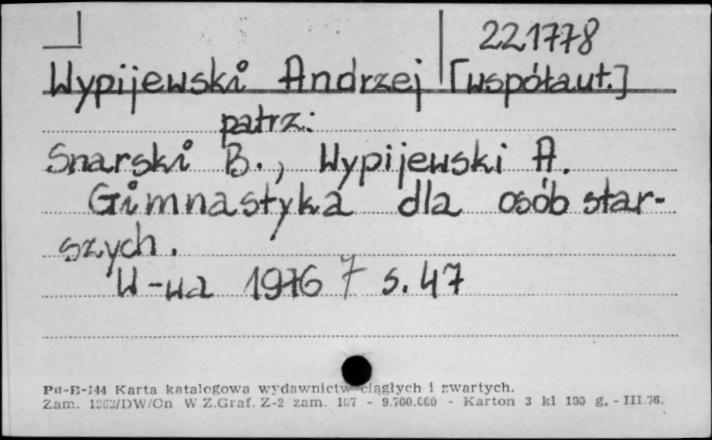 221778
Wypijewski Andrzej [współaut.]
patrz:
Snarski B., Wypijewski A.
Gimnastyka dla osób star-
szych.
W-wa 1976 7 s. 47
Pu-B-144 Karta katalogowa wydawnictw ciągłych i zwartych.
Zam. /DW/On W.Z.Graf. Z-2 zam. 107 - 9.700.000 - Karton 3 kl 190 g. - III.76.